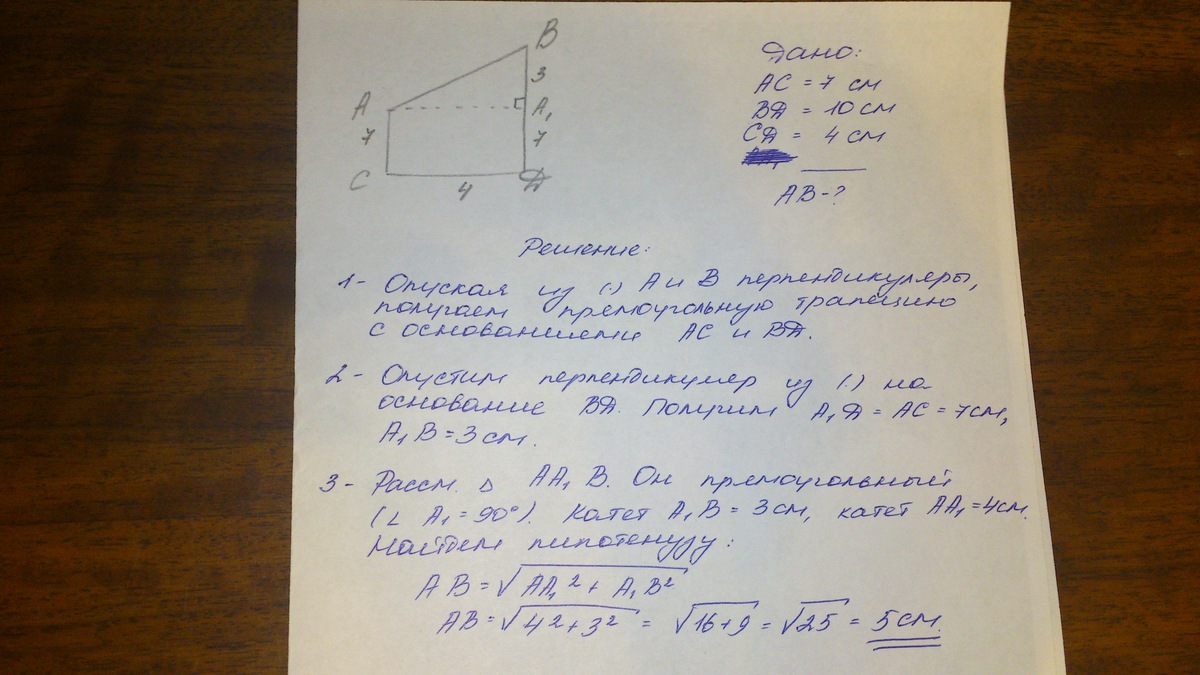 B
3
A
A₁
7
7
C
Д
4
Дано:
AC = 7 см
BД = 10 см
CД = 4 см
AB - ?
Решение:
1 - Опуская из (·) A и B перпендикуляры,
получаем прямоугольную трапецию
с основаниями AC и BД.
2 - Опустим перпендикуляр из (·) на
основание BД. Получим A₁Д = AC = 7см,
A₁B = 3 см.
3 - Рассм. Δ AA₁B. Он прямоугольный
(∠ A₁ = 90°). Катет A₁B = 3 см, катет AA₁ = 4 см.
Найдем гипотенузу:
AB = √AA₁² + A₁B²
AB = √4² + 3² = √16 + 9 = √25 = 5 см.